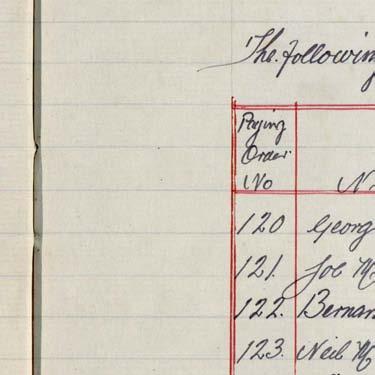 The following
Paying
Order
No N
120 Georg
121. Job M
122. Bernar
123. Neil M